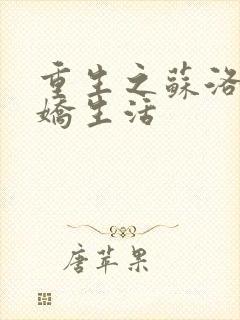 重生之蘇洛
嬌生活
唐苹果